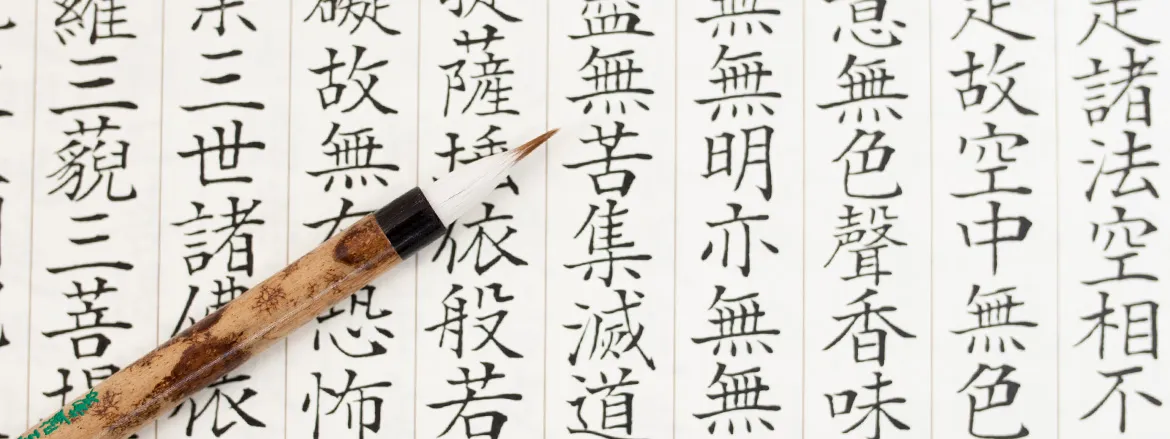 是諸法空相不
是故空中無色
意無色聲香味
無無明亦無無
盡無苦集滅道
提薩埵依般若
礙故無有恐怖
三世諸佛依
羅三藐三菩提